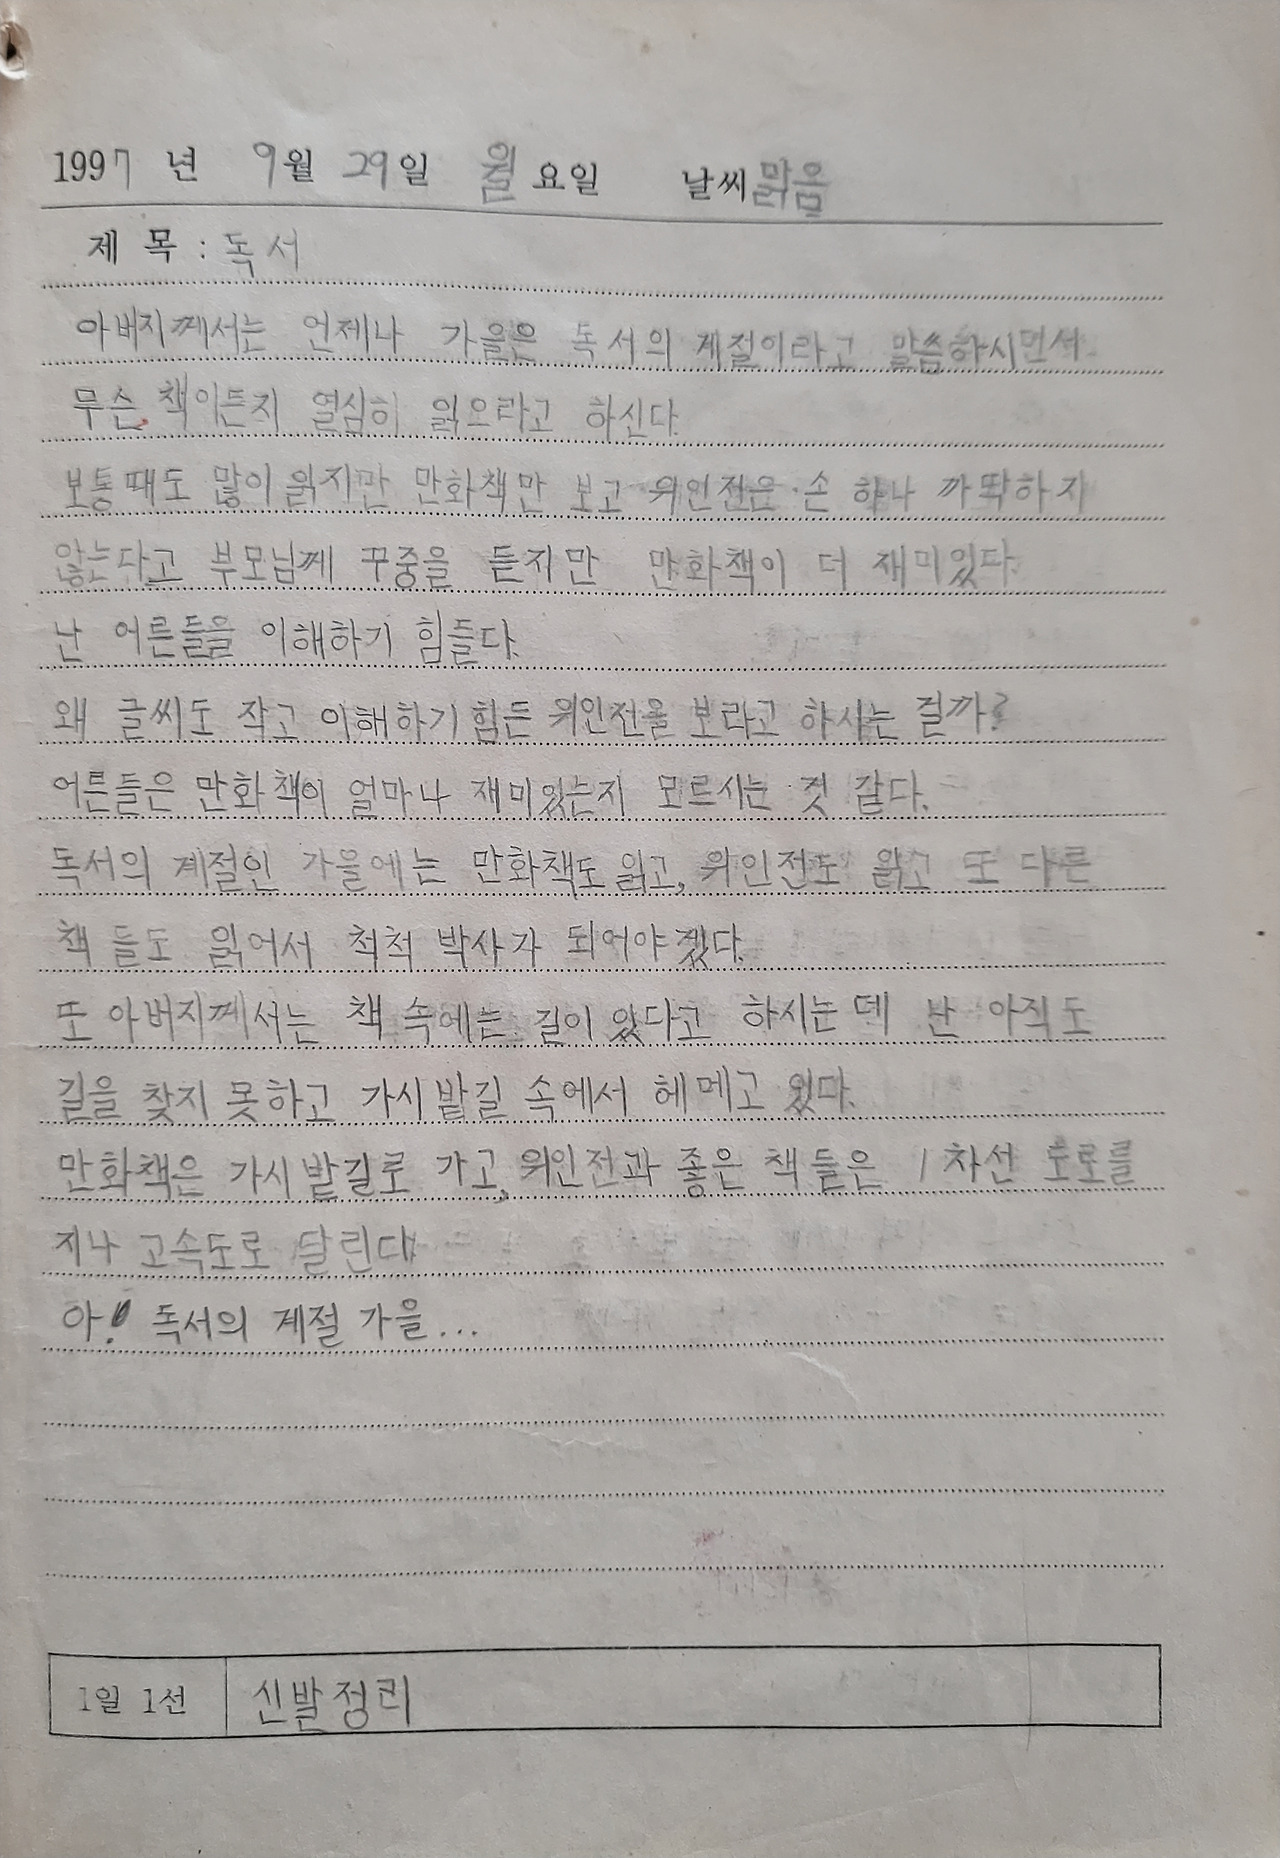 1997 년 9월 29일 월요일 날씨 맑음
제 목 : 독서
아버지께서는 언제나 가을은 독서의 계절이라고 말씀하시면서
무슨 책이든지 열심히 읽으라고 하신다.
보통때도 많이 읽지만 만화책만 보고 위인전은 손 하나 까딱하지
않는다고 부모님께 꾸중을 듣지만 만화책이 더 재미있다.
난 어른들을 이해하기 힘들다.
왜 글씨도 작고 이해하기 힘든 위인전을 보라고 하시는 걸까?
어른들은 만화책이 얼마나 재미있는지 모르시는 것 같다.
독서의 계절인 가을에는 만화책도 읽고, 위인전도 읽고 또 다른
책 들도 읽어서 척척 박사가 되어야겠다.
또 아버지께서는 책 속에는 길이 있다고 하시는데 난 아직도
길을 찾지 못하고 가시밭길 속에서 헤메고 있다.
만화책은 가시밭길로 가고, 위인전과 좋은 책들은 1차선 도로를
지나 고속도로 달린다
아! 독서의 계절 가을...
1일 1선 신발정리